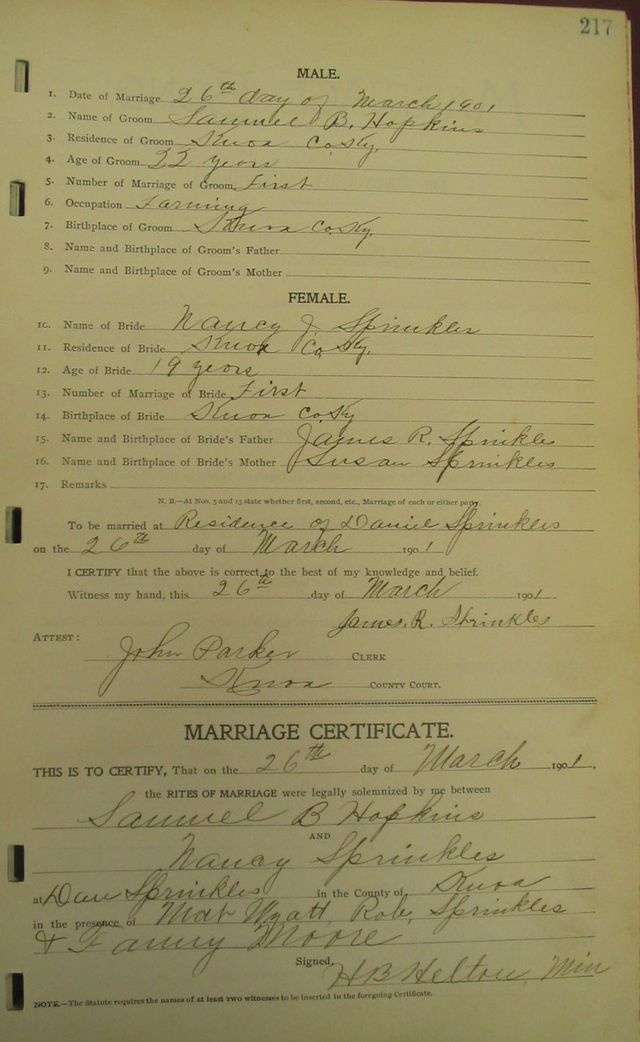 217
MALE.
1. Date of Marriage 26th day of March 1901
2. Name of Groom Samuel B. Hopkins
3. Residence of Groom Knox Co. Ky.
4. Age of Groom 22 years
5. Number of Marriage of Groom First
6. Occupation Farming
7. Birthplace of Groom Knox Co. Ky.
8. Name and Birthplace of Groom's Father
9. Name and Birthplace of Groom's Mother
FEMALE.
10. Name of Bride Nancy J. Sprinkles
11. Residence of Bride Knox Co. Ky.
12. Age of Bride 19 years
13. Number of Marriage of Bride First
14. Birthplace of Bride Knox Co Ky
15. Name and Birthplace of Bride's Father James R. Sprinkles
16. Name and Birthplace of Bride's Mother Susan Sprinkles
17. Remarks
N. B.—At Nos. 5 and 13 state whether first, second, etc., Marriage of each or either party.
To be married at Residence of Daniel Sprinkles
on the 26th day of March 1901
I CERTIFY that the above is correct to the best of my knowledge and belief.
Witness my hand, this 26th day of March 1901
James. R. Sprinkles
ATTEST:
John Parker CLERK
Knox COUNTY COURT.
MARRIAGE CERTIFICATE.
THIS IS TO CERTIFY, That on the 26th day of March 1901.
the RITES OF MARRIAGE were legally solemnized by me between
Samuel B Hopkins
AND
Nancy Sprinkles
at Dan Sprinkles in the County of Knox
in the presence of Mat Wyatt, Rob, Sprinkles
& Fanny Moore
Signed, H B Helton, Min
NOTE.—The Statute requires the names of at least two witnesses to be inserted in the foregoing Certificate.